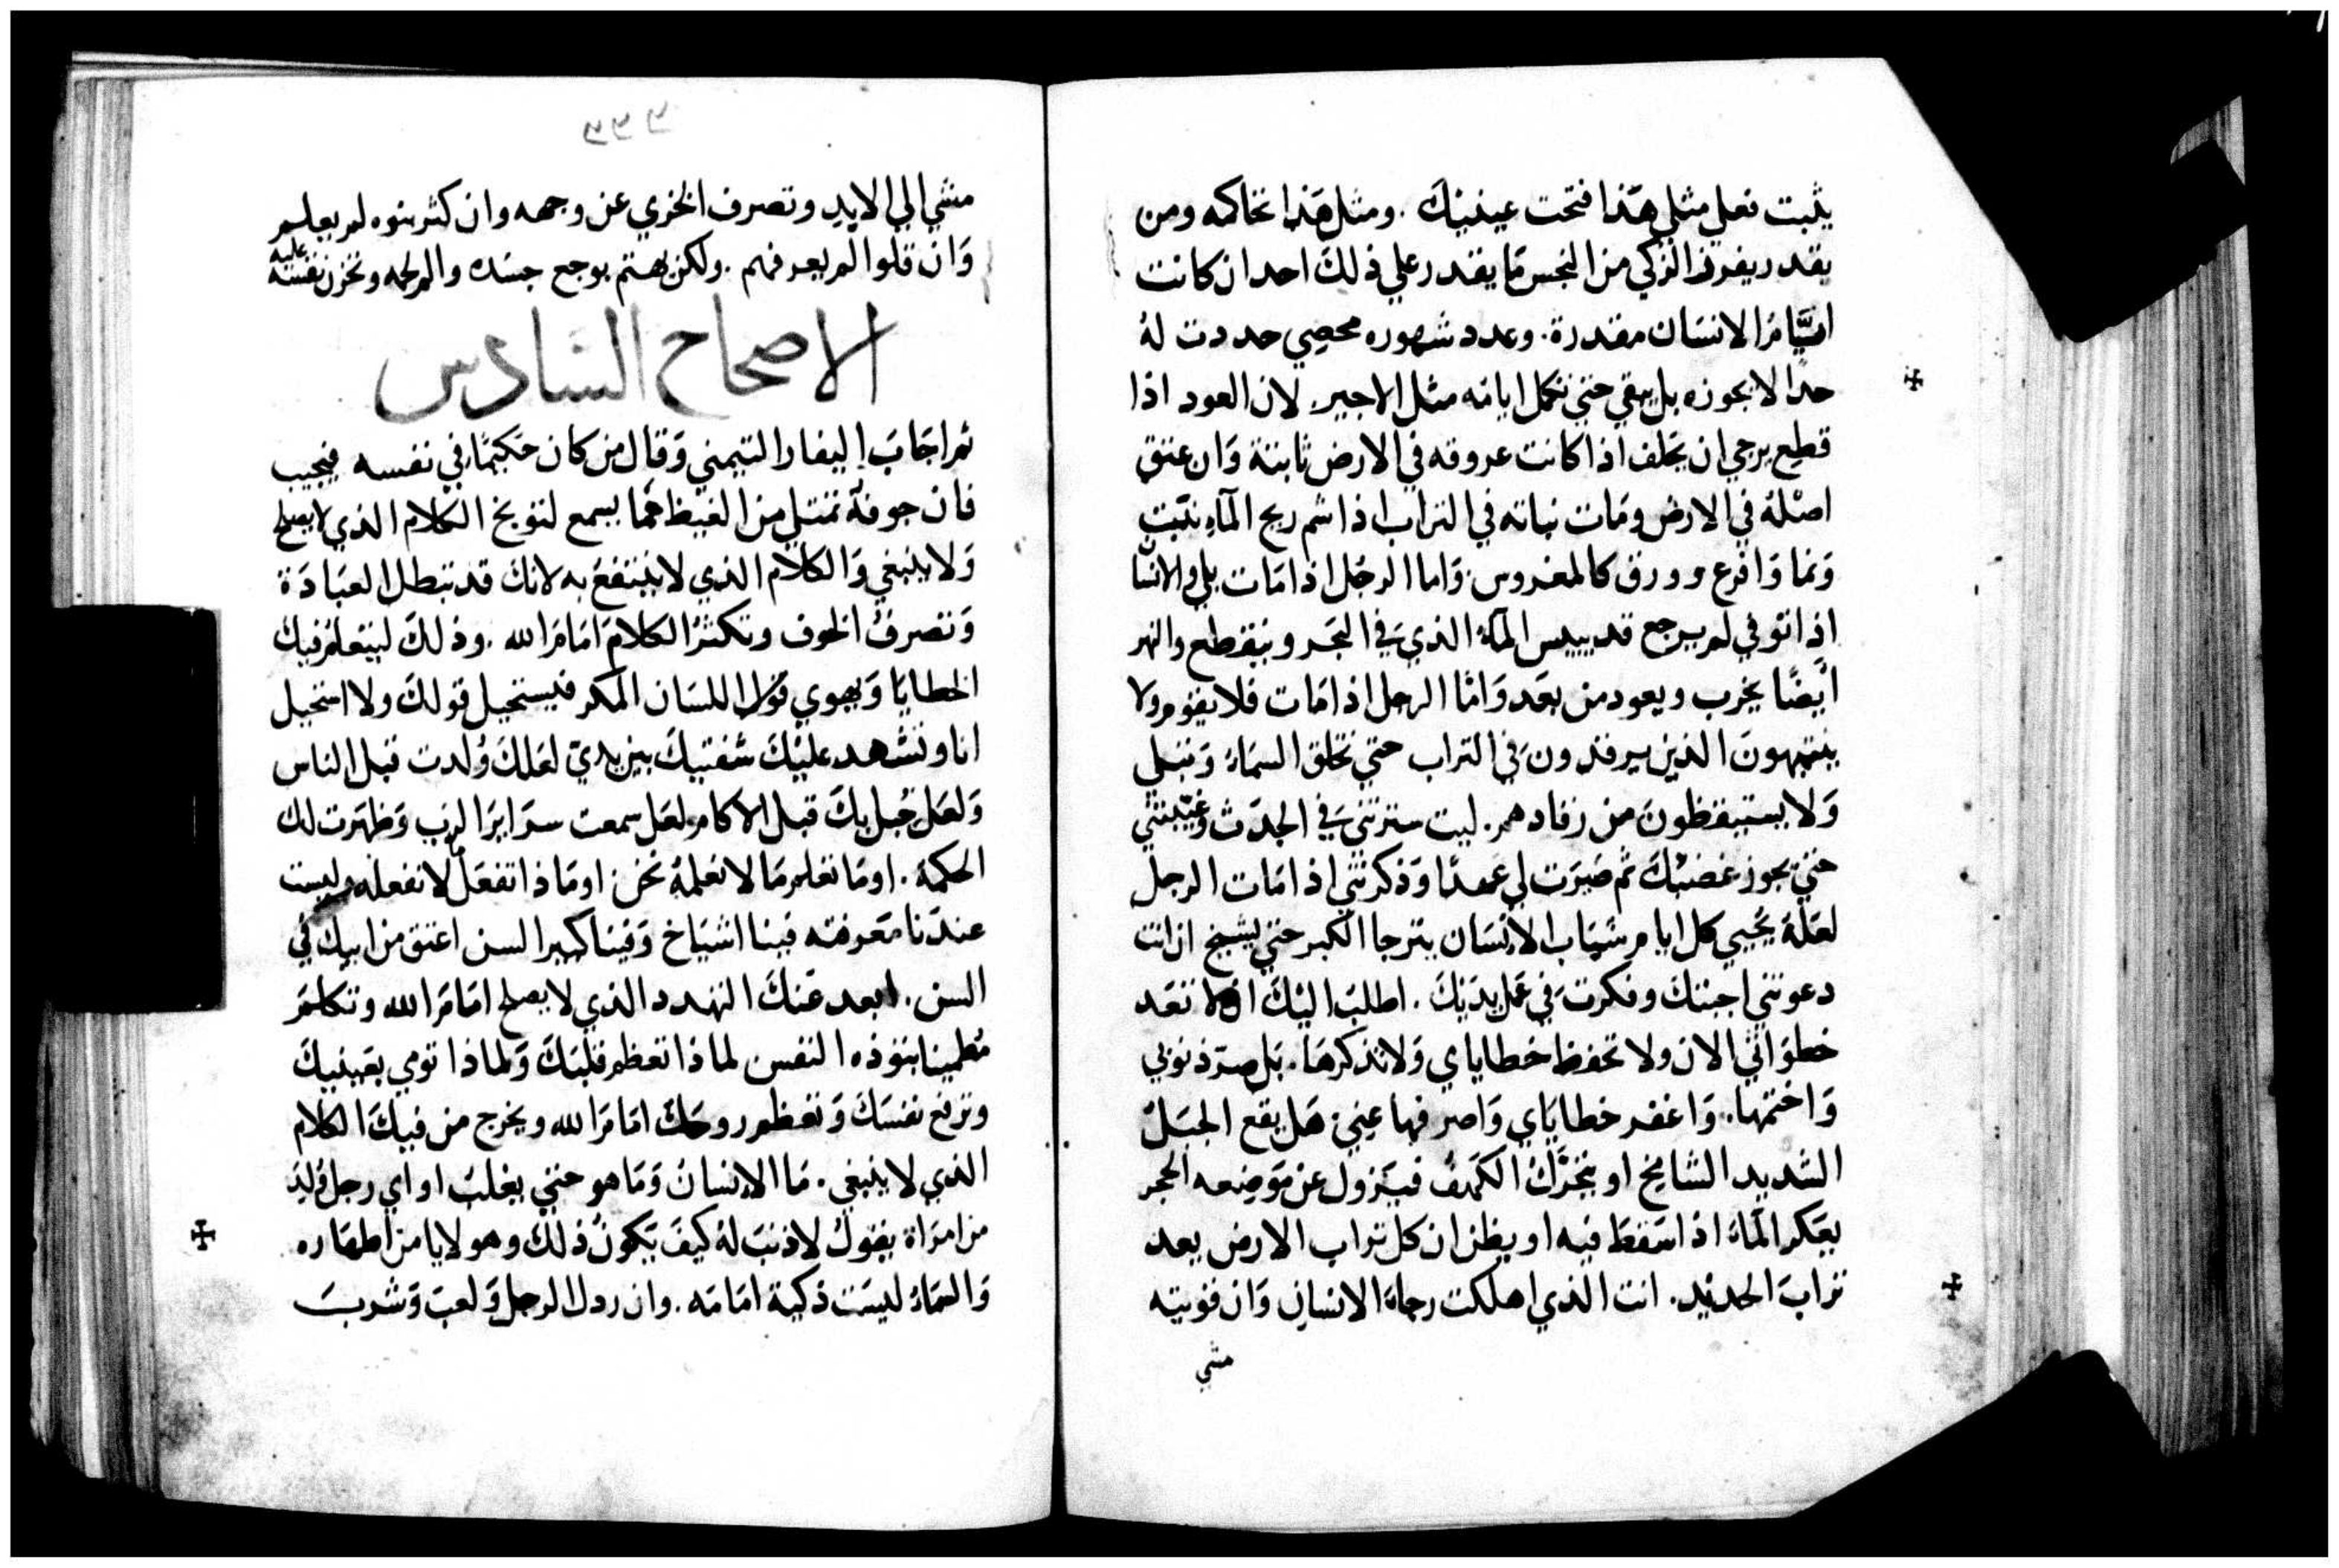 يثبت فعلي مثلي هذا فتحت عينيك . ومثل هذا تحاكمه ومن
يقدر يفرق الزكي من النجس ما يقدر علي ذلك احد ان كانت
ايَّامَرا الانسَان مقدرة . وعدد شهوره محصي حددت لهُ
حدًا لا يجوزه بل يبقي حتي تكمل ايامه مثل الاجير . لان العود اذا
قطع يرجي ان يخلف اذا كانت عروقه في الارض ثابتة وَان عتق
اصْلهُ في الارض ومَات نباته في التراب اذا شم ريح المآءِ نبت
وَنما وَافرع وورق كالمغروس . وَاما الرجُل اذا مَات بلي والانسَا
اذا توفي لم يرجع قد ييبس المآءُ الذي في البَحر وينقطع والنهر
ايضًا يخرب ويعود من بعَد وَامَّا الرجل اذا مَات فلا يقوم ولا
ينتبهونَ الذين يرقدون في التراب حتي تخلق السمَاءُ وَتبلي
وَلا يستيقظونَ من رقادهم . ليت سترتني في الجدَث وغيبتني
حتي يجوز غضبُكَ ثم صَيرَت لي عَهدًا وَذكرتني اذا مَات الرجل
لعَلهُ يُحيي كل ايام شبَاب الانسَان يترجا الكبر حتي يشيخ ان انت
دعوتني اجبتك وفكرت في عَمل يدَيكَ . اطلبَ اليْكَ الا تعَد
خطوَاتي الان ولا تحفظ خطاياي وَلا تذكرهَا . بَل صرّ ذنوبي
وَاختمهَا . وَاغفر خطايَاي وَاصرفهَا عني هَل يقع الجبَل
الشديد الشامخ او يتحرَّك الكهف فيَزول عن مَوَضِعه الحجر
يعَكر المَاءَ اذا سَقط فيه او يظن ان كل تراب الارض يعد
ترابَ الحديد . انت الذي اهلكت رجاءَ الانسان وَان قويته
مشي
مشي الي الابد وتصرف الخزي عن وجهه وان كثر بنوه لم يعلم
وَان قلوا لم يعرفهم . ولكن يهتم بوجع جسَده والم لحمه وتحزن نفسَه عليه
الاصحاح السَادس
ثم اجَابَ اليفاز التيمني وَقال من كان حَكيمًا في نفسه فيجيب
فان جوفهُ تمتلي من الغيظ مما يسمع لتوبخ الكلام الذي لا يصلح
وَلا ينبغي وَالكلام الذي لا ينتفعُ به لانك قد تبطل العبَادَة
وَتصرفُ الخوف وتكثرُ الكلام امَامَ الله . وذلكَ ليتعلمْ فيك
الخطايَا وَيهوي قول اللسَان المكر فيستحيل قولكَ ولا استحيل
انا وتشهد عليْكَ شفتيكَ بين يديّ لعَلكَ وُلدت قبل الناس
وَلعَل حُبل بكَ قبل الاكام لعَل سمعت سرَايرَ الربَ وَظهَرت لك
الحكمة . اومَا تعلم مَا لا نعلمهُ نحَن او مَاذا تفعَل لا نفعله وليست
عندَنا مَعَرفته فينا اشيَاخ وَفينا كبير السن اعتق من ابيك في
السن . ابعد عَنكَ التهدد الذي لا يصلح امَامَ الله وتتكلم
مُطمينا بتوذه النفس لماذا تعظم قلبَكَ وَلماذا تومي بعَينيكَ
وترفع نفسَكَ وَتعَظم روحَكَ امَامَ الله ويخرج من فيكَ الكلام
الذي لا ينبغي . مَا الانسَانُ وَمَا هو حتي يغلبَ او اي رجل وُلِدَ
من امرَاة يقولُ لا ذنبَ لهُ كيفَ يَكونُ ذلك وهو لا يامن اطهَاره
وَالسَمَاءُ ليسَت ذكية امَامَه . وان رذل الرجل وَلعبَ وَشربَ